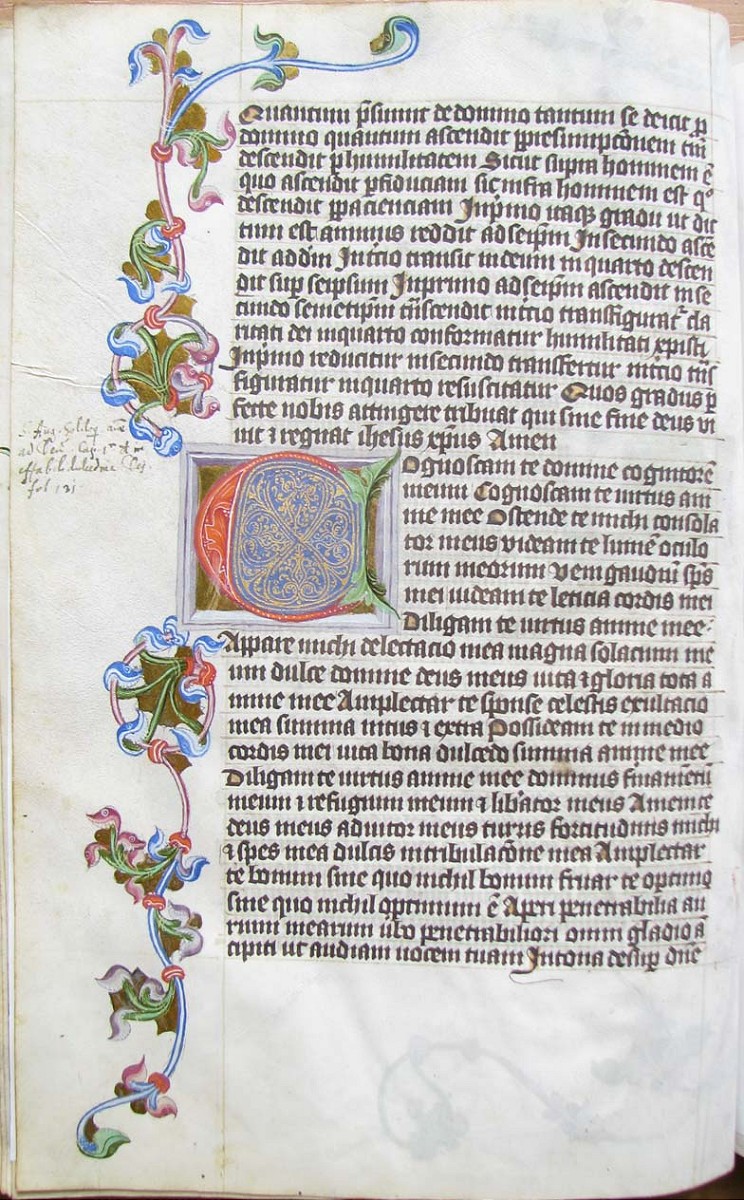 Quantum p̄sumit de domino tantum se deicit ꝓ
domino quantum ascendit ꝑ presumpcōnem tm̄
descendit ꝑ humilitatem Sicut supra hominem ē
quo ascendit ꝑ fiduciam sic infra hominem est qº
descendit ꝑ pacienciam In pͥmo itaqꝫ gradu ut dic
tum est animus reddit ad seip̄m In secundo ascē
dit ad dm̄ In tercio transit in deum in quarto descen
dit sup̄ seipsum In primo ad seip̄m ascendit in se
cundo semetip̄m tn̄scendit in tercio transfigurat᷑ cla
ritati dei in quarto conformatur humilitati xp̄isti
In pͥmo reducitur in secundo transfertur in tercio tn̄s
figuratur in quarto resuscitatur Quos gradus ꝑ
fecte nobis attingere tribuat qui sine fine deus vi
uit ⁊ regnat ihesus xp̄us Amen
Cognoscam te domine cognitorē
meum Cognoscam te uirtus ani
me mee Ostende te michi consola
tor meus videam te lumē oculo
rum meorum Veni gaudiū sp̄s
mei uideam te leticia cordis mei
Diligam te uirtus anime mee
Appare michi delectacio mea magna solacium me
um dulce domine deus meus uita ⁊ gloria tota a
nime mee Amplectar te sponse celestis exultacio
mea summa intus ⁊ extra Possideam te in medio
cordis mei uita bona dulcedo summa anime mee
Diligam te uirtus anime mee dominus firmamētū
meum ⁊ refugium meum ⁊ lib̄ator meus Amem te
deus meus adiutor meus turris fortitudinis michi
⁊ spes mea dulcis in tribulacōne mea Amplectar
te bonum sine quo nichil bonum fruar te optimo
sine quo nichil optimum ē Aperi penetrabilia au
rium mearum ūbo penetrabiliori omni gladio ā
cipiti ut audiam uocem tuam Intona desup̄ dn̄e